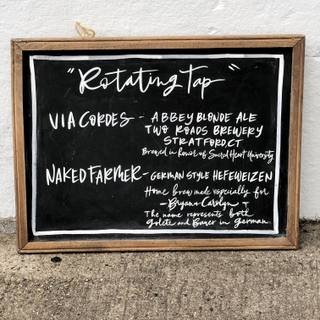 "Rotating Tap"
VIA CORDES - ABBEY BLONDE ALE
TWO ROADS BREWERY
STRATFORD.CT
Brewed in honor of Sacred Heart University
NAKED FARMER - GERMAN STYLE HEFEWEIZEN
Home brew made especially for
- Bryan + Carolyn
The name represents both
and Bauer in German.